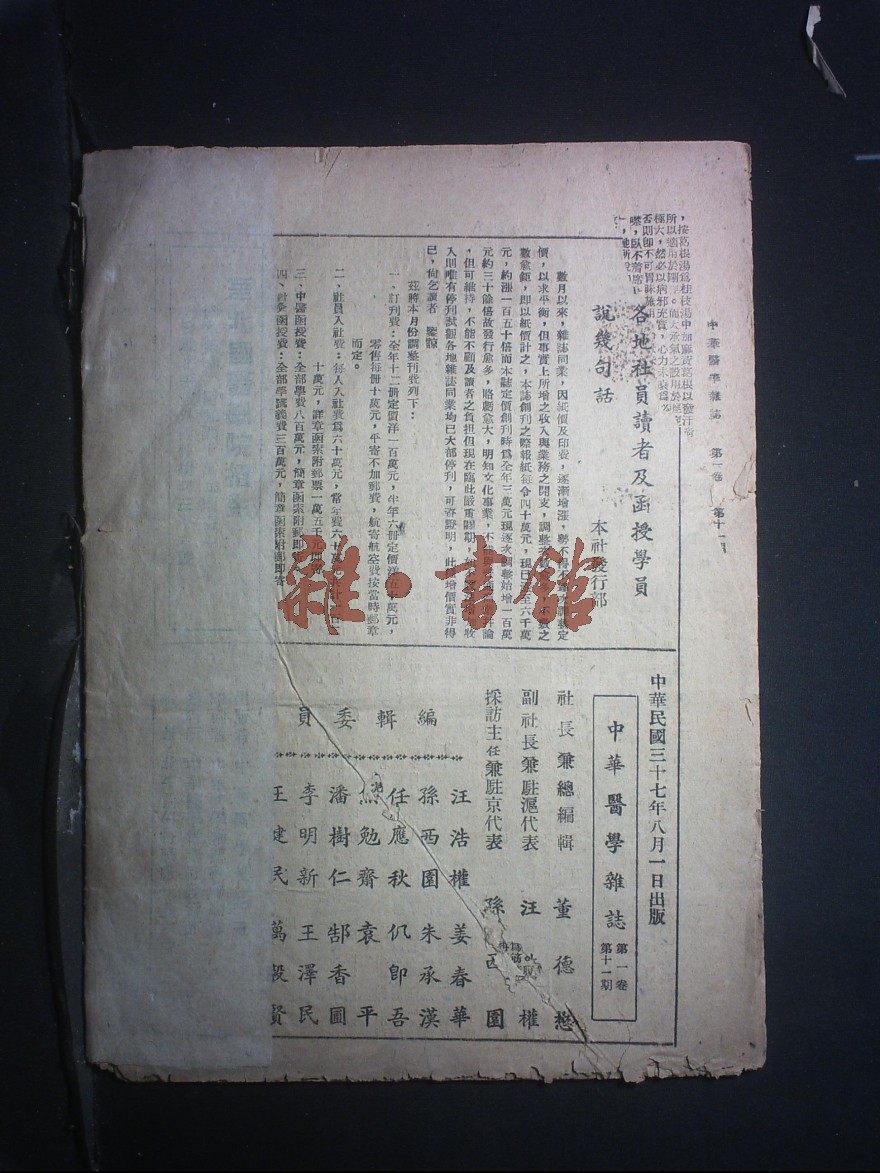 中華醫學雜誌　第一卷　第十一期
，按葛根湯爲桂枝湯中加麻黃葛根以發汗
各地社員讀者及函授學員
說幾句話
本社發行部
數月以來，雜誌同業，因紙價及印費，逐漸增漲，勢不得
價，以求平衡，但事實上所增之收入與業務之開支，調整
數愈鉅，即以紙價計之，本誌創刊之際報紙每令四十萬元，現已漲至六千萬
元，約漲一百五十倍而本誌定價創刊時爲全年三萬元現逐次調整始增一百萬
元約三十餘倍故發行愈多，賂虧愈大，明知文化事業，不
，但可維持，不能不顧及讀者之負担但現在臨此嚴重關期，
入則唯有停刊試觀各地雜誌同業均已大部停刊，可資證明，此次增價實非得
已，尙乞讀者　鑒諒
茲將本月份調整刊費列下：
一、訂刊費：全年十二冊定價洋一百萬元，半年六冊定價洋五十萬元，
零售每冊十萬元，平寄不加郵費，航寄航空費按當時郵章
而定。
二、社員入社費：每人入社費爲六十萬元，常年費六十萬
十萬元，詳章函索附郵票一萬五千元即寄
三、中醫函授費：全部學費八百萬元，簡章函索附郵即
四、針灸函授費：全部學講義費三百萬元，簡章函索附郵即寄
中華民國三十七年八月一日出版
中華醫學雜誌　第一卷　第十一期
社長兼總編輯　董德懋
副社長兼駐滬代表　汪　權
採訪主任兼駐京代表　孫西園
編輯委員
汪浩權　姜春華
孫西園　朱承漢
任應秋　仉即吾
熊勉齋　袁平
潘樹仁　郜香圃
李明新　王澤民
王健民　萬毅賢
雜·書館